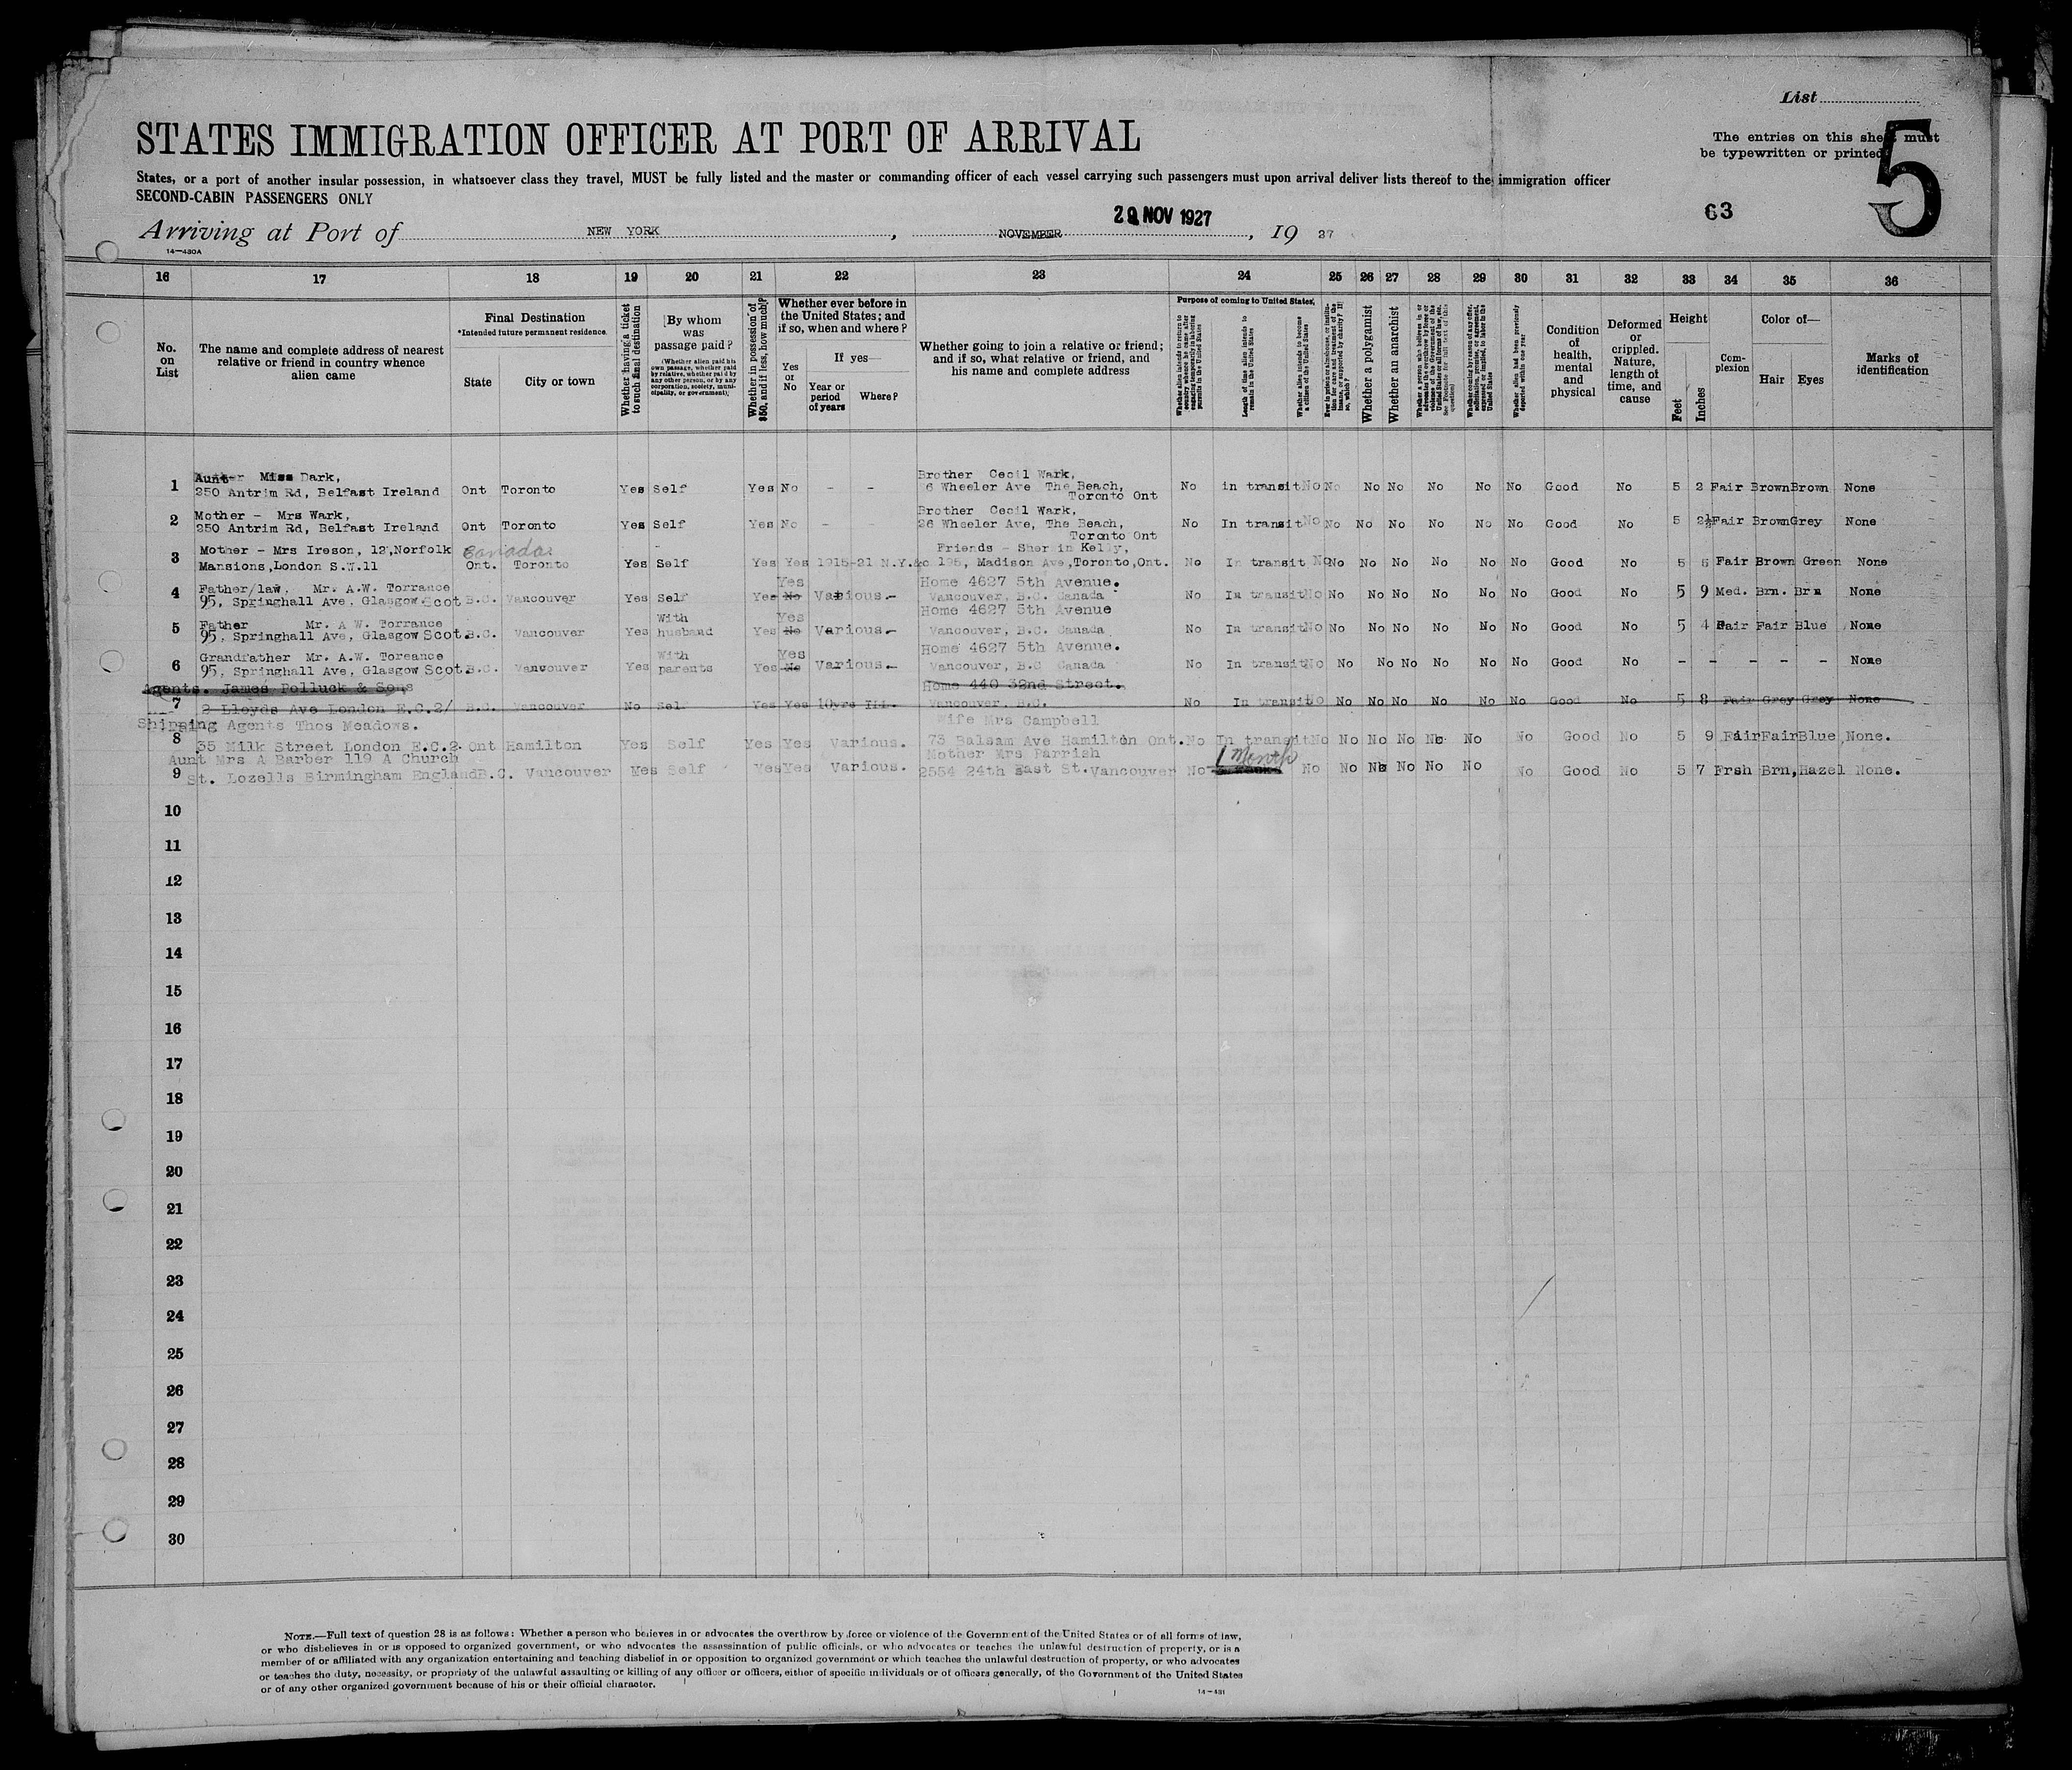 List
STATES IMMIGRATION OFFICER AT PORT OF ARRIVAL
The entries on this sheet must
be typewritten or printed
5
States, or a port of another insular possession, in whatsoever class they travel, MUST be fully listed and the master or commanding officer of each vessel carrying such passengers must upon arrival deliver lists thereof to the immigration officer
SECOND-CABIN PASSENGERS ONLY
63
Arriving at Port of NEW YORK, NOVEMBER 29 NOV 1927, 19 27
14—430A
16 17 18 19 20 21 22 23 24 25 26 27 28 29 30 31 32 33 34 35 36
No. on List
The name and complete address of nearest relative or friend in country whence alien came
Final Destination
*Intended future permanent residence.
State
City or town
Whether having a ticket to such final destination
By whom was passage paid?
(Whether alien paid his own passage, whether paid by relative, whether paid by any other person, or by any corporation, society, municipality, or government)
Whether in possession of $50, and if less, how much?
Whether ever before in the United States; and if so, when and where?
Yes or No
If yes—
Year or period of years
Where?
Whether going to join a relative or friend; and if so, what relative or friend, and his name and complete address
Purpose of coming to United States.
Whether alien intends to return to country whence he came after engaging temporarily in laboring pursuits in the United States
Length of time alien intends to remain in the United States
Whether alien intends to become a citizen of the United States
Ever in prison or almshouse, or institution for care and treatment of the insane, or supported by charity? If so, which?
Whether a polygamist
Whether an anarchist
Whether coming by reason of any offer, solicitation, promise, or agreement, expressed or implied, to labor in the United States
Whether alien had been previously deported within one year
Condition of health, mental and physical
Deformed or crippled. Nature, length of time, and cause
Height
Feet
Inches
Complexion
Color of—
Hair
Eyes
Marks of identification
1 Aunt Miss Dark, Brother Cecil Wark,
250 Antrim Rd, Belfast Ireland Ont Toronto Yes Self Yes No - - 6 Wheeler Ave The Beach, No in transit No No No No No No No Good No 5 2 Fair Brown Brown None
Toronto Ont
2 Mother - Mrs Wark, Brother Cecil Wark,
250 Antrim Rd, Belfast Ireland Ont Toronto Yes Self Yes No - 26 Wheeler Ave, The Beach, No In transit No No No No No No No Good No 5 2½ Fair Brown Grey None
Toronto Ont
3 Mother - Mrs Ireson, 12,Norfolk Canada Friends - Sher in Kelly,
Mansions,London S.W.11 Ont. Toronto Yes Self Yes Yes 1915-21 N.Y.&c 195, Madison Ave,Toronto,Ont. No In transit No No No No No No No Good No 5 5 Fair Brown Green None
4 Father/law, Mr. A.W. Torrance Yes Home 4627 5th Avenue.
95, Springhall Ave, Glasgow Scot B.C. Vancouver Yes Self Yes No Various.- Vancouver, B.C. Canada No In transit No No No No No No No Good No 5 9 Med. Brn. Brn None
5 Father Mr. A W. Torrance With Yes Home 4627 5th Avenue
95, Springhall Ave, Glasgow Scot. B.C. Vancouver Yes husband Yes No Various.- Vancouver, B.C. Canada No In transit No No No No No No No Good No 5 4 Fair Fair Blue None
6 Grandfather Mr. A.W. Toreance With Yes Home 4627 5th Avenue.
95, Springhall Ave, Glasgow Scot. B.C. Vancouver Yes parents Yes No Various.- Vancouver, B.C Canada No In transit No No No No No No No Good No - - - - - None
Agents. James Polluck & Sons Home 440 32nd Street.
7 2 Lloyds Ave London E.C.2/ B.C. Vancouver No Self Yes Yes 10yrs Ill. Vancouver, B.C. No In transit No No No No No No No Good No 5 8 Fair Grey Grey None
Shipping Agents Thos Meadows. Wife Mrs Campbell
8 35 Milk Street London E.C.2. Ont Hamilton Yes Self Yes Yes Various. 73 Balsam Ave Hamilton Ont. No In transit No No No No No No No Good No 5 9 Fair Fair Blue None.
Aunt Mrs A Barber 119 A Church Mother Mrs Parrish 1 Month
9 St. Lozells Birmingham England B.C. Vancouver Yes Self Yes Yes Various. 2554 24th East St. Vancouver No No No No No No No No Good No 5 7 Frsh Brn, Hazel None.
10
11
12
13
14
15
16
17
18
19
20
21
22
23
24
25
26
27
28
29
30
NOTE.—Full text of question 28 is as follows: Whether a person who believes in or advocates the overthrow by force or violence of the Government of the United States or of all forms of law,
or who disbelieves in or is opposed to organized government, or who advocates the assassination of public officials, or who advocates or teaches the unlawful destruction of property, or is a
member of or affiliated with any organization entertaining and teaching disbelief in or opposition to organized government or which teaches the unlawful destruction of property, or who advocates
or teaches the duty, necessity, or propriety of the unlawful assaulting or killing of any officer or officers, either of specific individuals or of officers generally, of the Government of the United States
or of any other organized government because of his or their official character.
14—431